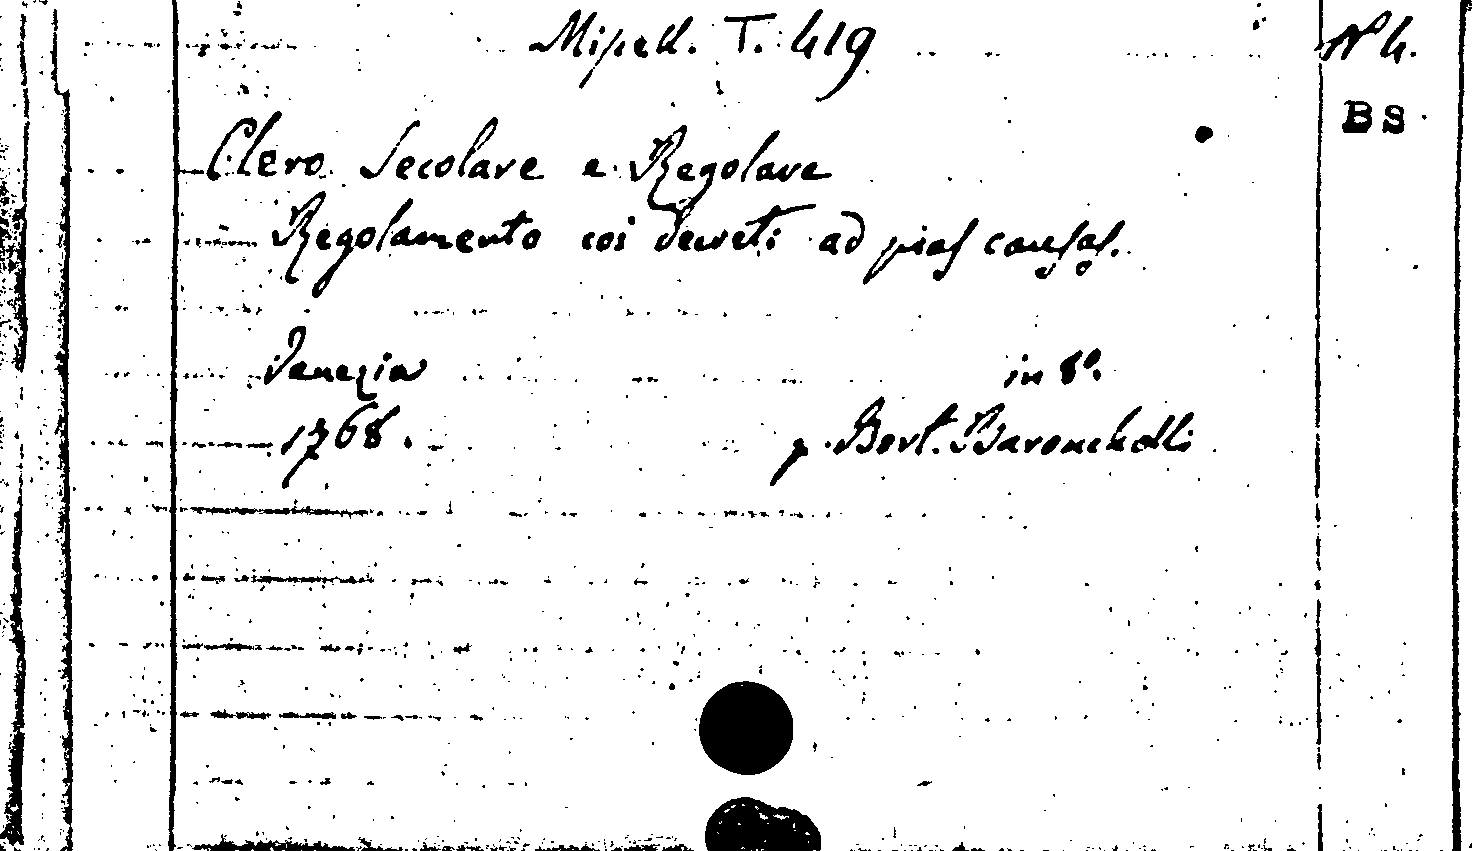 Miscell. T. 419 N° 4.
BS
Clero Secolare e Regolare
Regolamento coi decreti ad pias causas.
Venezia in 8°.
1768. p. Bort. Baronchelli